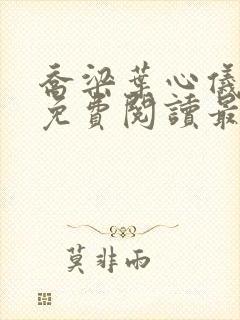 喬梁葉心儀
免費閱讀最
莫非雨